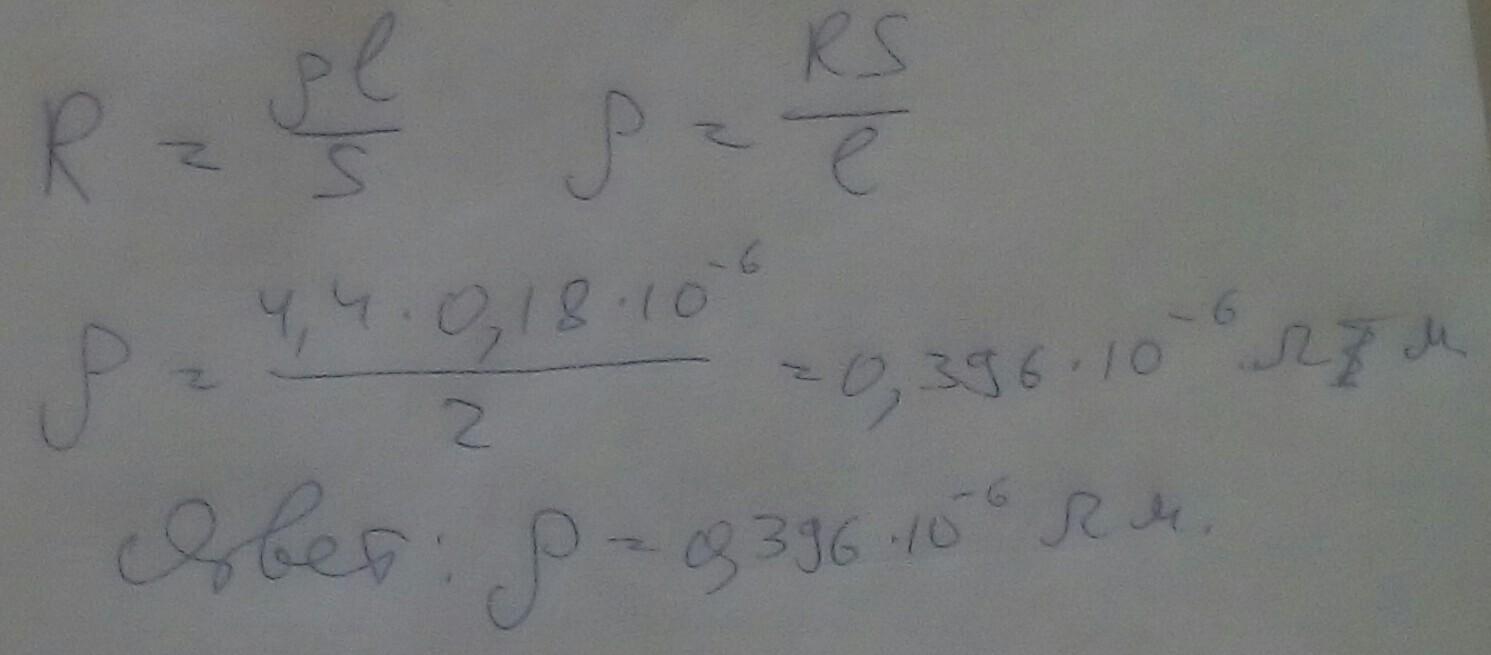 R = ρl/S ρ = RS/l
ρ = 4,4 · 0,18 · 10⁻⁶/2 = 0,396 · 10⁻⁶ Ω м
Ответ: ρ = 0,396 · 10⁻⁶ Ω м.